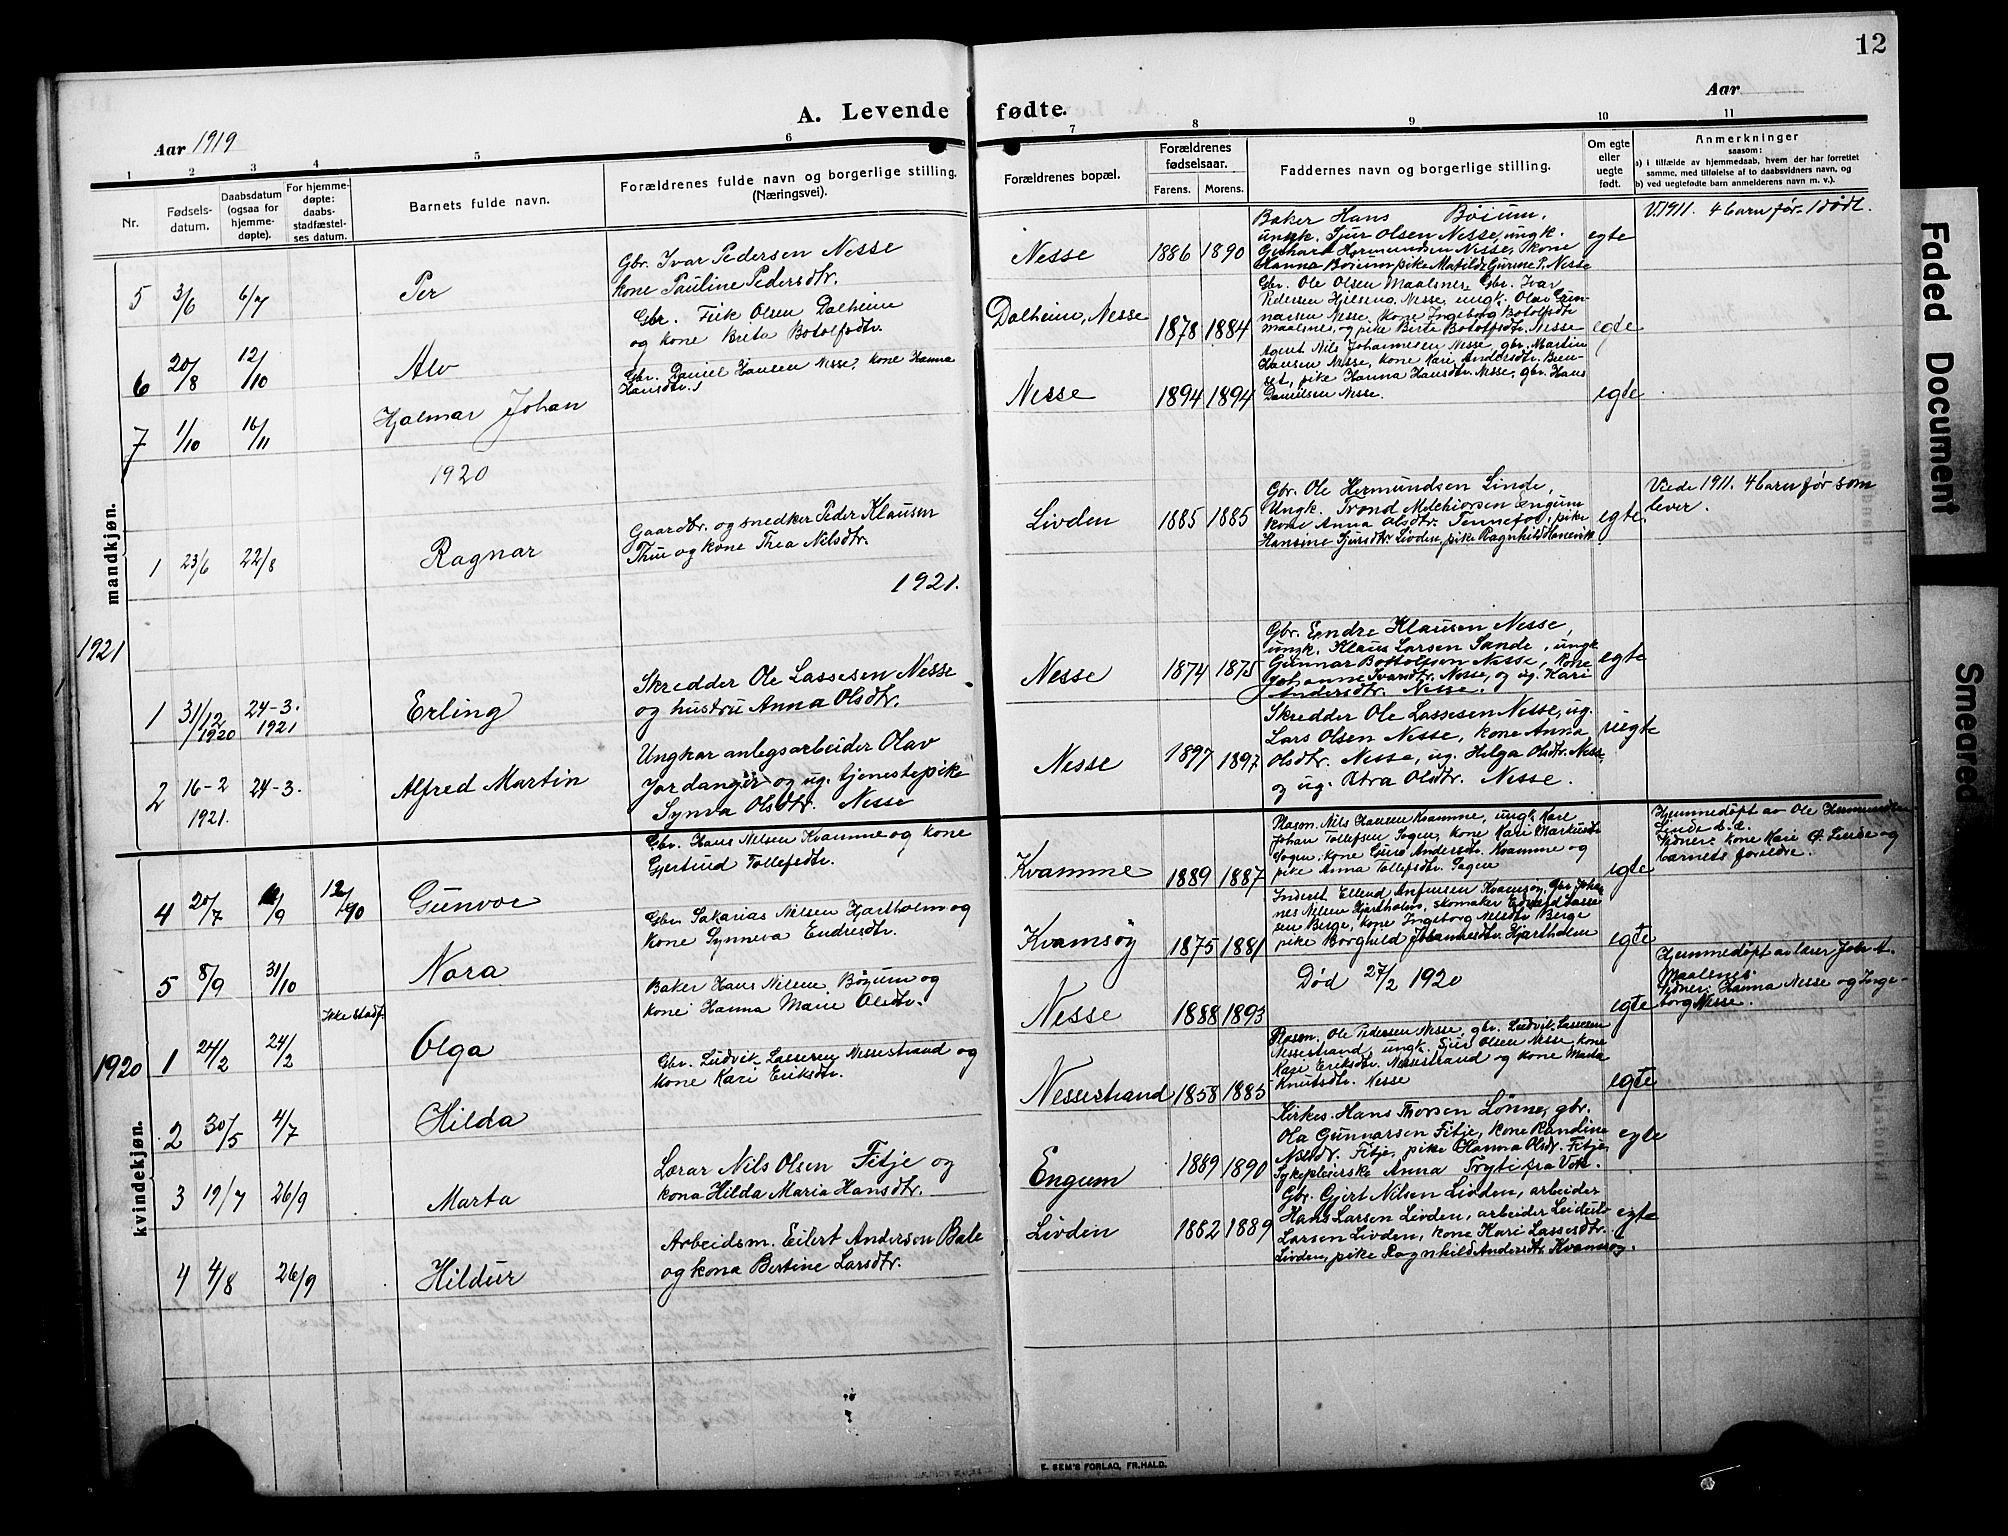 12
Aar
A. Levende fødte.
Aar 1919
1 2 3 4 5 6 7 8 9 10 11
Nr.
Fødsels-
datum.
Daabsdatum
(ogsaa for
hjemme-
døpte).
For hjemme-
døpte:
daabs-
stadfæstel-
ses datum.
Barnets fulde navn.
Forældrenes fulde navn og borgerlige stilling.
(Næringsvei).
Forældrenes bopæl.
Forældrenes
fødselsaar.
Farens. Morens.
Faddernes navn og borgerlige stilling.
Om egte
eller
uegte
født.
Anmerkninger
saasom:
a) i tilfælde av hjemmedaab, hvem der har forrettet
samme, med tilføielse af to daabsvidners navn, og
b) ved uegtefødte barn anmelderens navn m. v.).
mandkjøn.
5 3/6 6/7 Per
Gbr. Ivar Pedersen Nesse
kone Pauline Pedersdtr.
Nesse 1886 1890
Baker Hans Bøium,
ungk. Sjur Olsen Nesse, ungk.
Gerhart Hermundsen Nesse, kone
Hanna Bøium, pike Matilde Gurine P. Nesse
egte
V. 1911. 4 barn før - 1 dødt.
6 20/8 12/10 Alv
Gbr. Eirik Olsen Dalheim
og kone Brita Botolfsdtr.
Dalheim, Nesse 1878 1884
Gbr. Ole Olsen Maalsnes, Gbr. Ivar
Pedersen Hjelseng, Nesse, ungk. Olav Gun-
narsen Nesse, kone Ingeborg Botolfsdtr
Maalsnes, og pike Birte Botolfsdtr. Nesse
egte
7 1/10 16/11 Hjalmar Johan
Gbr. Daniel Hansen Nesse, kone Hanna
Hansdtr.
Nesse 1894 1894
Agent Nils Johannesen Nesse, gbr. Martin
Hansen Nesse, kone Kari Andersdtr.
pike Hanna Hansdtr. Nesse, gbr. Hans
Danielsen Nesse.
egte
1920
1 23/6 22/8 Ragnar
Gaardbr. og snedker Peder Klausen
Thue og kone Thea Nilsdtr.
Livden 1885 1885
Gbr. Ole Hermundsen Linde,
Ungk. Trond Melchiorsen Engum
kone Anna Olsdtr. Tennefos, pike
Hansine Sjursdtr. Livden, pike Ragnhild
egte
Viede 1911. 4 barn før som
lever.
1921.
1921
1 31/12 1920 24-3. 1921 Erling
Skredder Ole Lassesen Nesse
og hustru Anna Olsdtr.
Nesse 1874 1875
Gbr. Endre Klausen Nesse,
ungk. Klaus Larsen Sande, ungk
Gunnar Bottolfsen Nesse, kone
Johanne Ivarsdtr. Nesse, og ug. Kari
Andersdtr. Nesse.
egte
2 16-2 1921. 24-3. Alfred Martin
Ungkar anlegsarbeider Olav
Jordanger og ug. tjenestepike
Synva Olsdtr. Nesse
Nesse 1897 1897
Skredder Ole Lassesen Nesse, ug.
Lars Olsen Nesse, kone Anna
Olsdtr. Nesse, ug. Helga Olsdtr. Nesse,
og ug. Olsdtr. Nesse.
uegte
kvindekjøn.
4 20/7 /9 Gunvor
Gbr. Hans Nilsen Kvamme og kone
Gjertrud Tollefsdtr.
Kvamme 1889 1887
Plasm. Nils Hansen Kvamme, ungk. Karl
Johan Tollefsen Sogen, kone Kari
Sogen, kone Guro Andersdtr. Kvamme og
pike Anna Tollefsdtr. Sogen
egte
Hjemmedøpt av Ole Hermundsen
Linde s. d.
Vidner: kone Kari O. Linde og
barnets forældre.
5 8/9 31/10 Nora
Gbr. Sakarias Nilsen Hjartholm og
kone Synneva Endresdtr.
Kvamsøy 1875 1881
Inderst Ellend Anfinsen Kvamsøy, Gbr Johan-
nes Nilsen Hjartholm, skomaker Edvard Lasse-
sen Berge, kone Ingeborg Nilsdtr Berge
pike Borghild Johannesdtr. Hjartholm
egte
1920
1 24/2 24/2 Ikke stadf. Olga
Baker Hans Nilsen Bøyum og
kone Hanna Marie Olsdtr.
Nesse 1888 1893
Død 27/2 1920
egte
Hjemmedøpt av lærer Joh. A.
Maalsnes.
Vidner: Hanna Nesse og Inge-
borg Nesse.
2 30/5 4/7 Hilda
Gbr. Ludvik Lassesen Nessestrand og
kone Kari Eriksdtr.
Nessestrand 1858 1885
Plasm. Ole Pedersen Nesse, gbr. Ludvik Lassesen
Nessestrand, ungk. Sjur Olsen Nesse, kone
Kari Eriksdtr. Nessestrand og kone Marta
Knutsdtr. Nesse
egte
3 19/7 26/9 Marta
Lærar Nils Olsen Fitje og
kona Hilda Maria Hansdtr.
Engum 1889 1890
Kirkes. Hans Thorsen Lønne, gbr.
Ola Gunnarsen Fitje, kone Randine
Fitje, pike Hanna Olsdr. Fitje,
Sykepleierske Anna Tryti fra Vik.
egte
4 4/8 26/9 Hildur
Arbeidsm. Eilert Andersen Bale
og kona Bertine Larsdtr.
Livden 1882 1889
Gbr. Gjert Nilsen Livden, arbeider
Hans Larsen Livden, arbeider
Larsen Livden, kone Kari Lassesdtr.
Livden, pike Ragnhild Andersdtr Kvamsøy.
egte
E. SEM'S FORLAG, FR.HALD.
Faded Document
Smeared